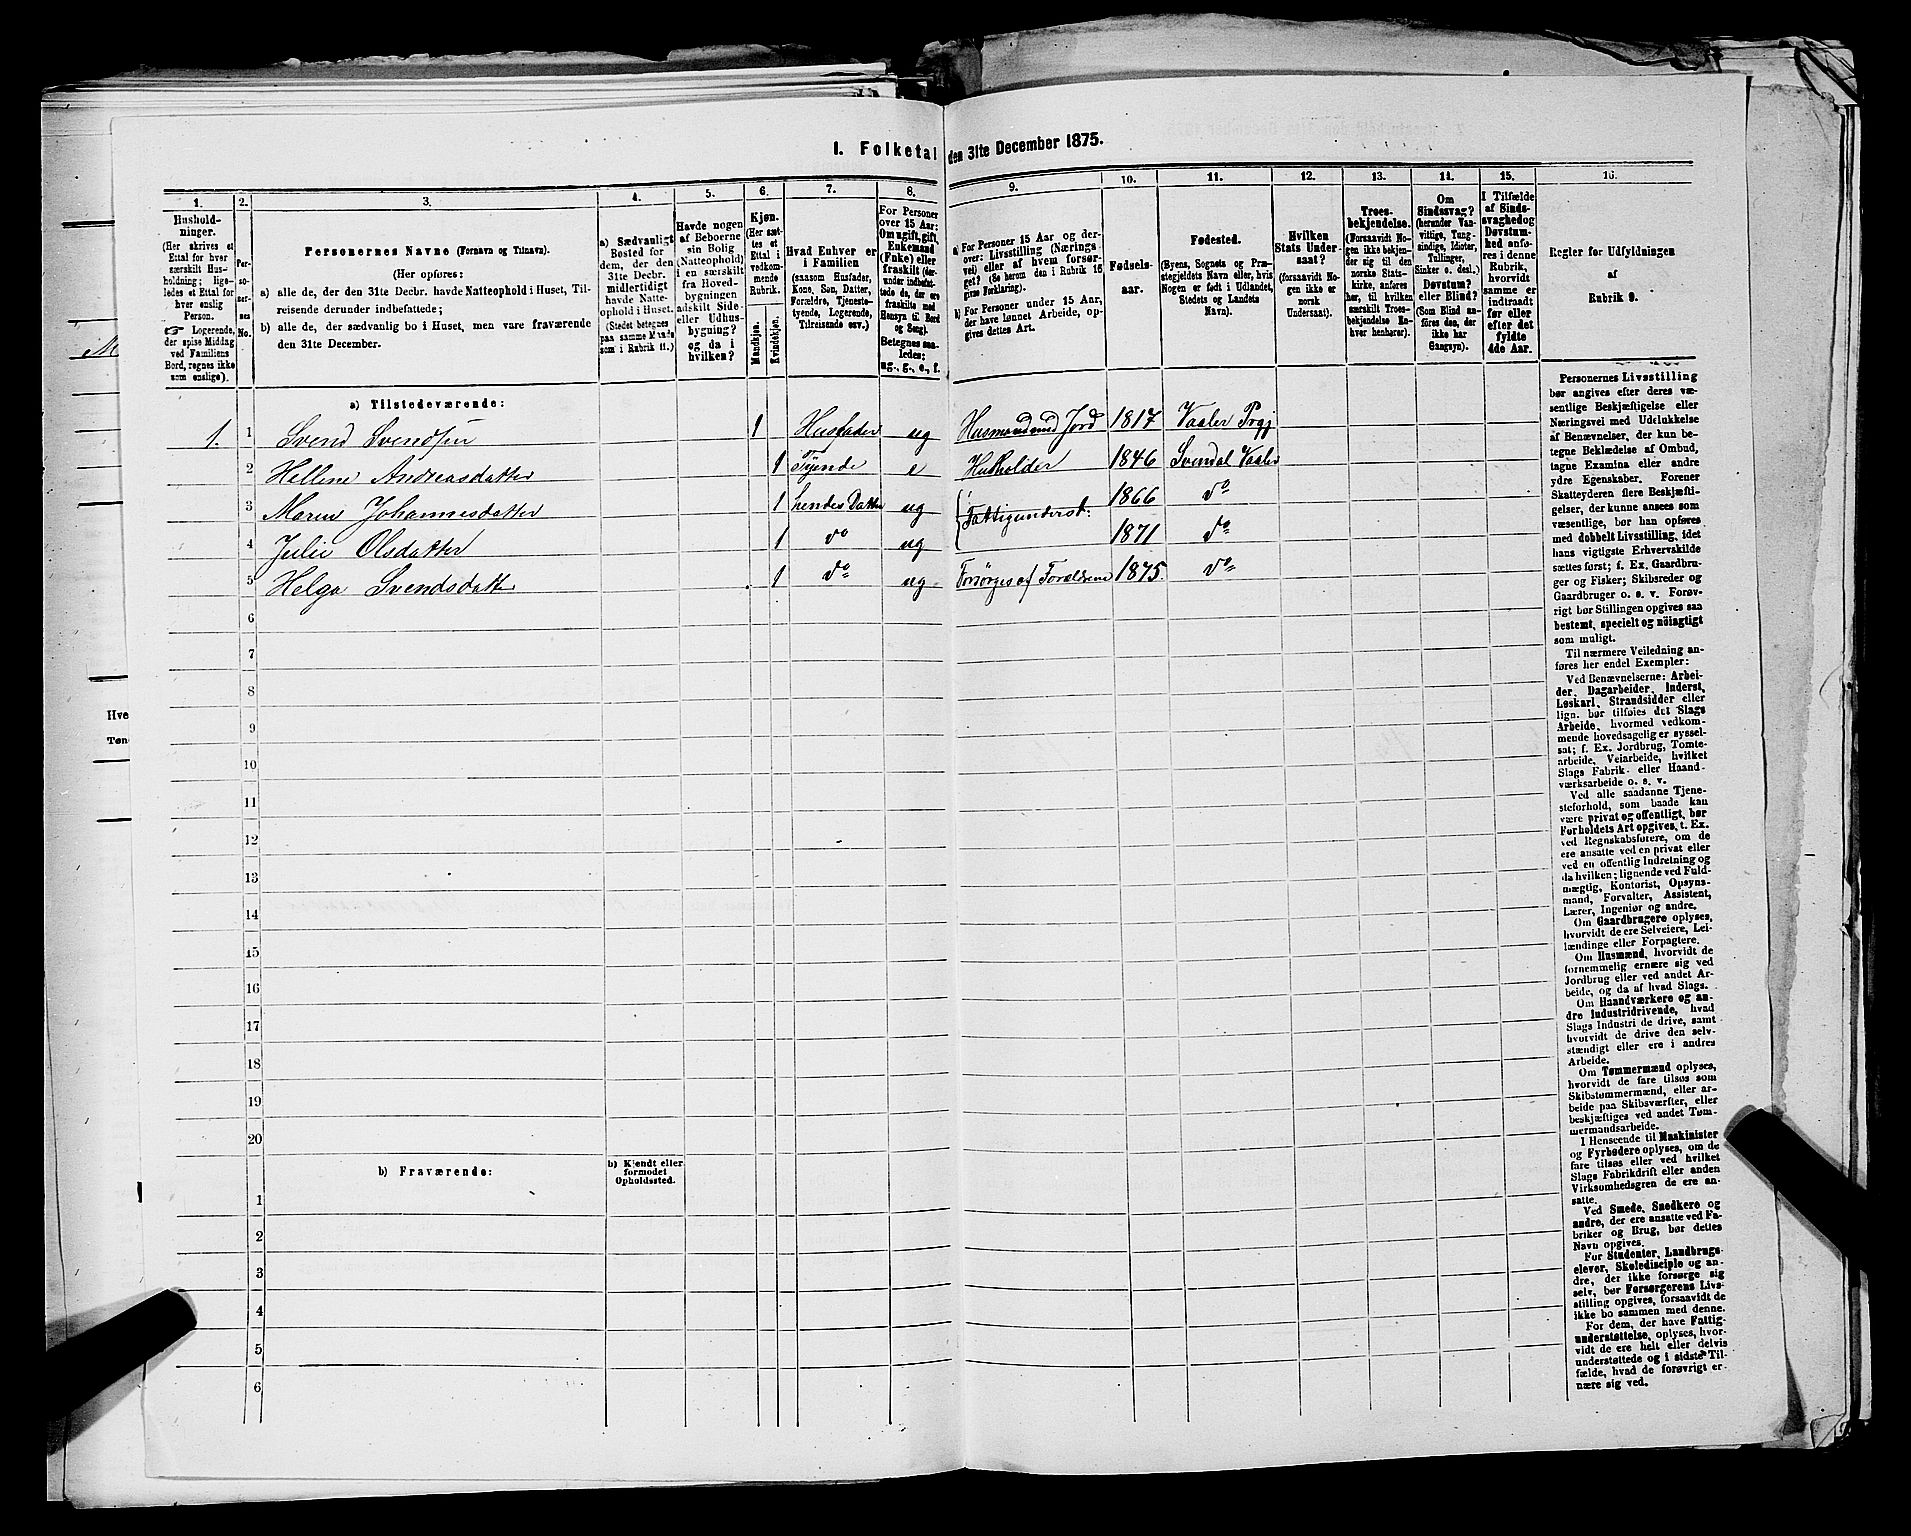 I. Folketal den 31te December 1875.
1. 2. 3. 4. 5. 6. 7. 8. 9. 10. 11. 12. 13. 14. 15. 16.
Hushold-
ninger.
(Her skrives et
Ettal for hver
særskilt Hus-
holdning; lige-
ledes et Ettal for
hver enslig
Person.
Logerende,
der spise Middag
ved Familiens
Bord, regnes ikke
som enslige).
Per-
so-
ner-
nes
No.
Personernes Navne (Fornavn og Tilnavn).
(Her opføres:
a) alle de, der den 31te Decbr. havde Natteophold i Huset, Til-
reisende derunder indbefattede;
b) alle de, der sædvanlig bo i Huset, men vare fraværende
den 31te December.
a) Sædvanligt
Bosted for
dem, der den
31te Decbr.
midlertidigt
havde Natte-
ophold i Huset.
(Stedet betegnes
paa samme Maade
som i Rubrik 11.)
Havde nogen
af Beboerne
sin Bolig
(Natteophold)
i en særskilt
fra Hoved-
bygningen
adskilt Side-
eller Udhus-
bygning?
og da i
hvilken?
Kjøn.
(Her sæt-
tes et
Ettal i
vedkom-
mende
Rubrik.
Mandkjøn.
Kvindekjøn.
Hvad Enhver er
i Familien
(saasom Husfader,
Kone, Søn, Datter,
Forældre, Tjeneste-
tyende, Logerende,
Tilreisende osv.)
For Personer
over 15 Aar:
Om ugift, gift,
Enkemand
(Enke) eller
fraskilt (der-
under indbefat-
tede de, der ere
fraskilte med
Hensyn til Bord
og Seng).
Betegnes saa-
ledes:
ug., g., e., f.
a) For Personer 15 Aar og der-
over: Livsstilling (Nærings-
vei) eller af hvem forsør-
get? (Se herom den i Rubrik 16
givne Forklaring).
b) For Personer under 15 Aar,
der have lønnet Arbeide, op-
gives dettes Art.
Fødsels-
aar.
Fødested.
(Byens, Sognets og Præ-
stegjeldets Navn eller, hvis
Nogen er født i Udlandet,
Stedets og Landets
Navn).
Hvilken
Stats Under-
saat?
(forsaavidt No-
gen ikke er
norsk
Undersaat).
Troes-
bekjendelse.
(Forsaavidt No-
gen ikke bekjen-
der sig til den
norske Stats-
kirke, anføres
her, til hvilken
særskilt Troes-
bekjendelse En-
hver henhører).
Om
Sindssvag?
(herunder Van-
vittige, Tung-
sindige, Idioter,
Tullinger,
Sinker o. desl.)
Døvstum?
eller Blind?
(Som Blind an-
føres den, der
ikke har
Gangsyn).
I Tilfælde
af Sinds-
svaghed og
Døvstum-
hed anfø-
res i denne
Rubrik,
hvorvidt
samme er
indtraadt
før eller
efter det
fyldte
4de Aar.
Regler for Udfyldningen
af
Rubrik 9.
a) Tilstedeværende:
1. 1 Svend Svendsen 1 Husfader ug Husmand med Jord 1817 Vaaler Prgj
2 Hellene Andreasdatter 1 Tyende e Husholder 1846 Svendal Vaaler
3 Maren Johannesdatter 1 hendes Datter ug Fattigunderst: 1866 do
4 Julie Olsdatter 1 do ug 1871 do
5 Helga Svendsdatter 1 do ug Forsørges af Forældrene 1875. do
6
7
8
9
10
11
12
13
14
15
16
17
18
19
20
b) Fraværende:
b) Kjendt eller
formodet
Opholdssted.
1
2
3
4
5
6
Personernes Livsstilling
bør angives efter deres væ-
sentlige Beskjæftigelse eller
Næringsvei med Udelukkelse
af Benævnelser, der kun be-
tegne Beklædelse af Ombud,
tagne Examina eller andre
ydre Egenskaber. Forener
Skatteyderen flere Beskjæfti-
gelser, der kunne ansees som
væsentlige, bør han opføres
med dobbelt Livsstilling, idet
hans vigtigste Erhvervskilde
sættes først; f. Ex. Gaardbru-
ger og Fisker; Skibsreder og
Gaardbruger o. s. v. Forøv-
rigt bør Stillingen opgives saa
bestemt, specielt og nöiagtigt
som muligt.
Til nærmere Veiledning an-
føres her endel Exempler:
Ved Benævnelserne: Arbei-
der, Dagarbeider, Inderst,
Løskarl, Strandsidder eller
lign. bør tilføies det Slags
Arbeide, hvormed vedkom-
mende hovedsagelig er syssel-
sat; f. Ex. Jordbrug, Tomte-
arbeide, Veiarbeide, hvilket
Slags Fabrik- eller Haand-
værksarbeide o. s. v.
Ved alle saadanne Tjene-
steforhold, som baade kan
være privat og offentligt, bør
Forholdets Art opgives, t. Ex.
ved Regnskabsførere, om de
ere ansatte ved en privat eller
ved en offentlig Indretning og
da hvilken; lignende ved Fuld-
mægtig, Kontorist, Opsyns-
mand, Forvalter, Assistent,
Lærer, Ingeniør og andre.
Om Gaardbrugere oplyses,
hvorvidt de ere Selveiere, Lei-
lændinge eller Forpagtere.
Om Husmænd, hvorvidt de
fornemmelig ernære sig ved
Jordbrug eller ved andet Ar-
beide, og da af hvad Slags.
Om Haandværkere og an-
dre Industridrivende, hvad
Slags Industri de drive, samt
hvorvidt de drive den selv-
stændigt eller ere i andres
Arbeide.
Om Tømmermænd oplyses,
hvorvidt de fare tilsøs som
Skibstømmermænd, eller ar-
beide paa Skibsværfter, eller
beskjæftiges ved andet Tøm-
mermandsarbeide.
I Henseende til Maskinister
og Fyrbødere oplyses, om de
fare tilsøs eller ved hvilket
Slags Fabrikdrift eller anden
Virksomhedsgren de ere an-
satte.
Ved Smede, Snedkere og
andre, der ere ansatte ved Fa-
briker og Brug, bør dettes
Navn opgives.
For Studenter, Landbrugs-
elever, Skoledisciple og an-
dre, der ikke forsørge sig
selv, bør Forsørgerens Livs-
stilling opgives, forsaavidt de
ikke bo sammen med denne.
For dem, der have Fattig-
understøttelse, oplyses, hvor-
vidt de ere helt eller delvis
understøttede og i sidste Til-
fælde, hvad de forøvrigt er-
nære sig ved.
Hve
Tøn